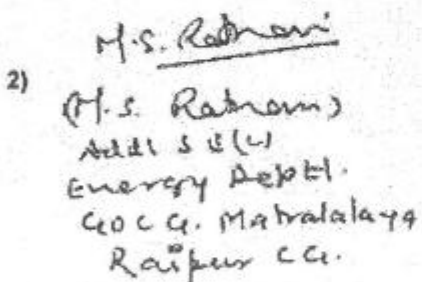 M.S. Ratnam
2)
(M.S. Ratnam)
Addl S E (C)
Energy Deptt.
GOCG. Matralalaya
Raipur CG.